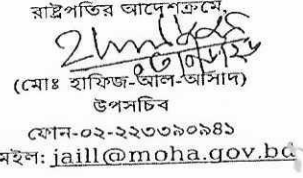 রাষ্ট্রপতির আদেশক্রমে,
(মোঃ হাফিজ-আল-আসাদ)
উপসচিব
ফোন-০২-২২৩৩৯০৯৪১
মইল: jaill@moha.gov.bd